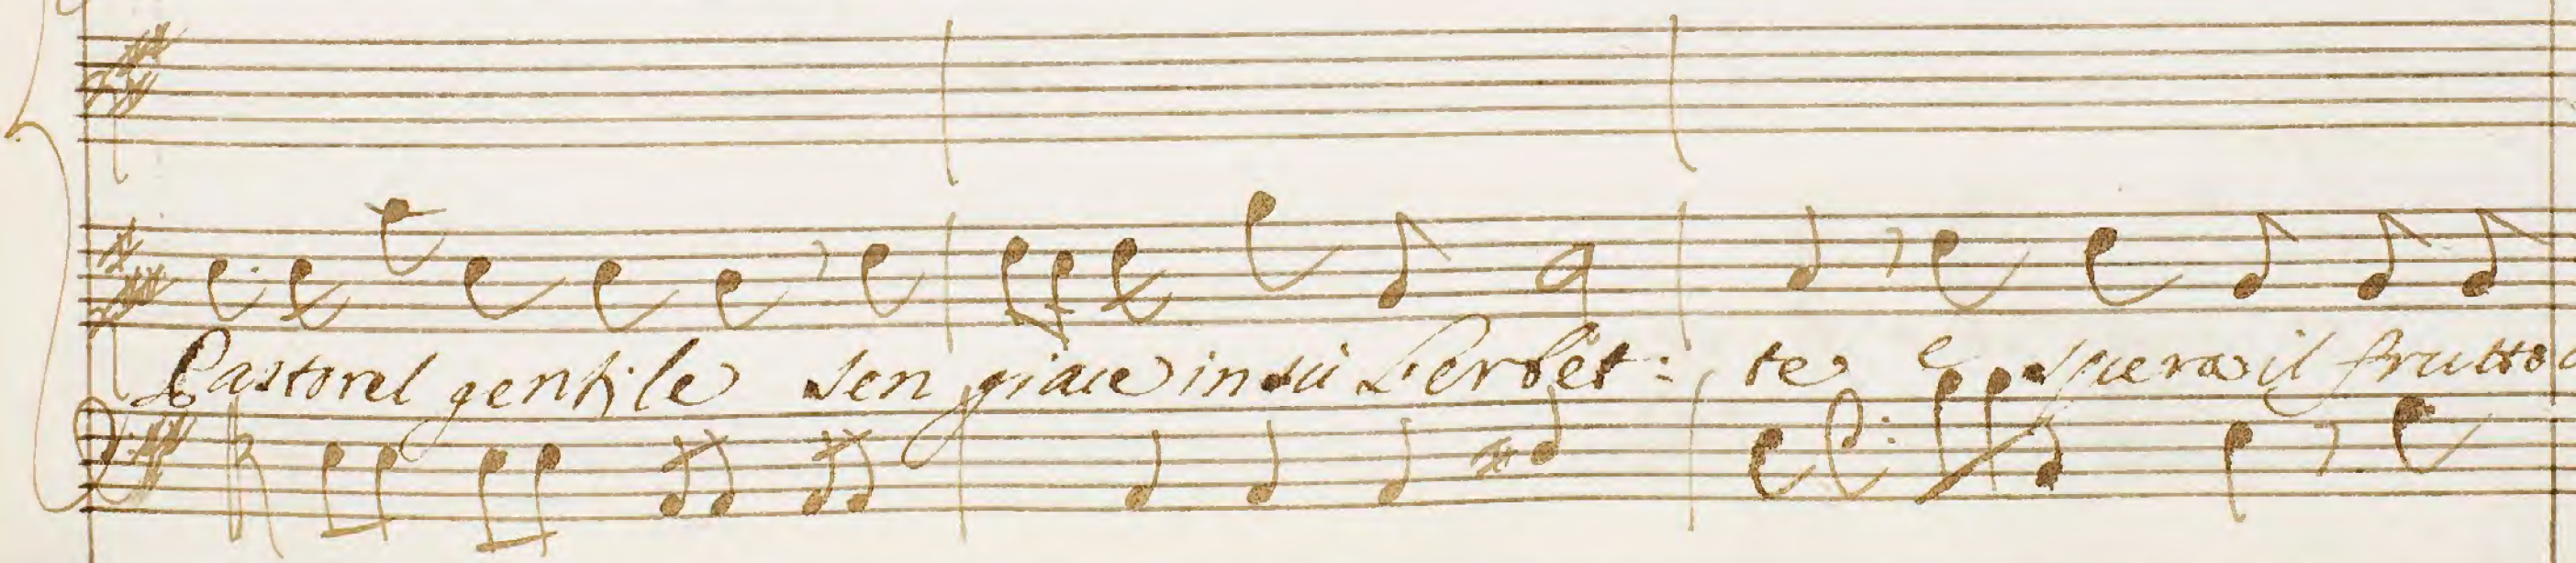 Pastorel gentile sen giace in sù l'erbet: te e spera il frutto